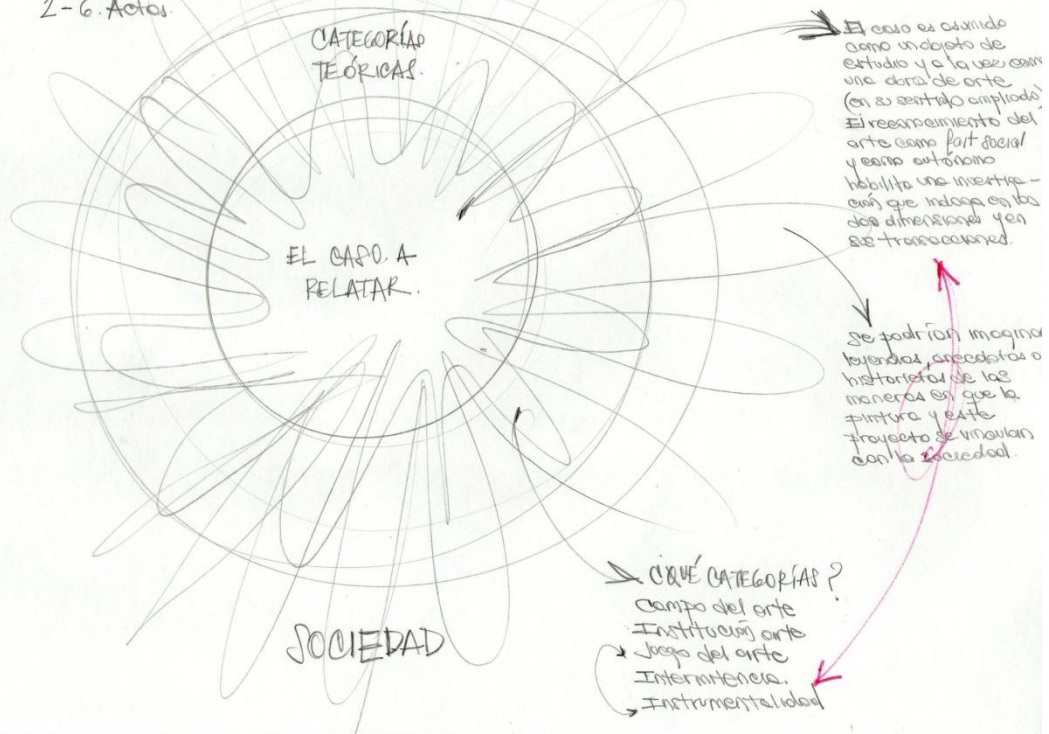 2-6. Actos.
CATEGORÍAS
TEÓRICAS.
EL CASO. A
RELATAR.
SOCIEDAD
El caso es asumido
como un objeto de
estudio y a la vez como
una obra de arte
(en su sentido ampliado)
El reconocimiento del
arte como fait social
y como autónomo
habilita una investiga-
ción que indaga en las
dos dimensiones y en
sus transacciones.
Se podrían imaginar
leyendas, anecdotas o
historietas de las
maneras en que la
pintura y este
proyecto se vinculan
con la sociedad.
¿QUÉ CATEGORÍAS?
Campo del arte
Institución arte
Juego del arte
Intermitencia.
Instrumentalidad